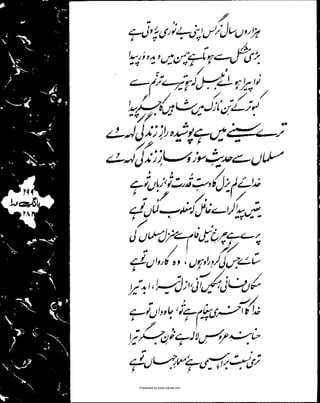 ہزاروں سال نرگس اپنی بے نوری پہ روتی ہے
بڑی مشکل سے ہوتا ہے چمن میں دیدہ ور پیدا
نوا پیرا ہو اے بلبل کہ ہو تیرے ترنم سے
کبوتر کے تن نازک میں شاہیں کا جگر پیدا
ترے سینے میں ہے پوشیدہ راز زندگی کہہ دے
مسلماں سے حدیث سوز و ساز زندگی کہہ دے
خدائے لم یزل کا دست قدرت تو، زباں تو ہے
یقیں پیدا کر اے غافل کہ مغلوب گماں تو ہے
پرے ہے چرخ نیلی فام سے منزل مسلماں کی
ستارے جس کی گرد راہ ہوں، وہ کارواں تو ہے
مکاں فانی، مکیں آنی، ازل تیرا، ابد تیرا
خدا کا آخری پیغام ہے تو، جاوداں تو ہے
حنا بند عروس لالہ ہے خون جگر تیرا
تری نسبت براہیمی ہے، معمار جہاں تو ہے
بانگ درا
Presented by www.ziaraat.com